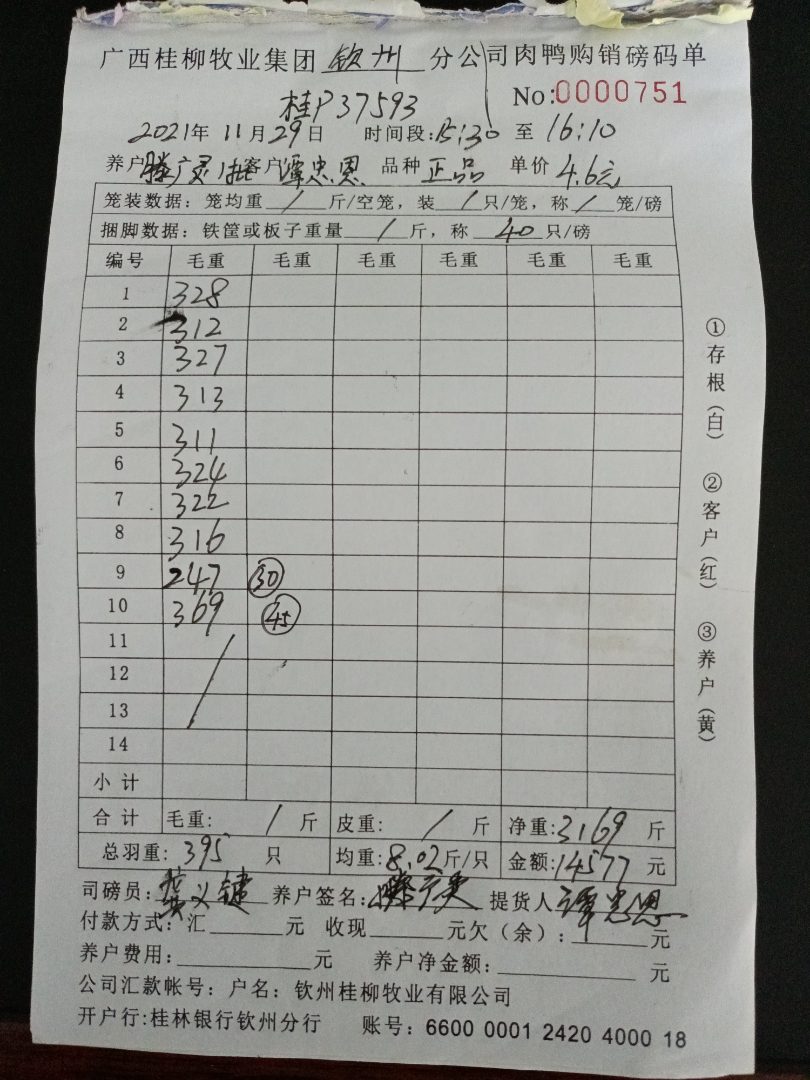 广西桂柳牧业集团 钦州 分公司肉鸭购销磅码单
桂P37593
No:0000751
2021年 11月 29日 时间段:15:30 至 16:10
养户 滕广灵 客户 谭忠恩 品种 正品 单价 4.6元
笼装数据：笼均重 / 斤/空笼，装 / 只/笼，称 / 笼/磅
捆脚数据：铁筐或板子重量 / 斤，称 40 只/磅
编号 毛重 毛重 毛重 毛重 毛重 毛重
1 328
2 312
3 327
4 313
5 311
6 324
7 322
8 316
9 247 30
10 369 45
11
12 /
13
14
小计
合计 毛重: / 斤 皮重: / 斤 净重:3169 斤
总羽重: 395 只 均重:8.02斤/只 金额:14577 元
司磅员: 龚义键 养户签名: 提货人 谭忠恩
付款方式: 汇 元 收现 元欠（余）: 元
养户费用: 元 养户净金额: 元
公司汇款帐号：户名：钦州桂柳牧业有限公司
开户行:桂林银行钦州分行 账号：6600 0001 2420 4000 18
①存根（白） ②客户（红） ③养户（黄）